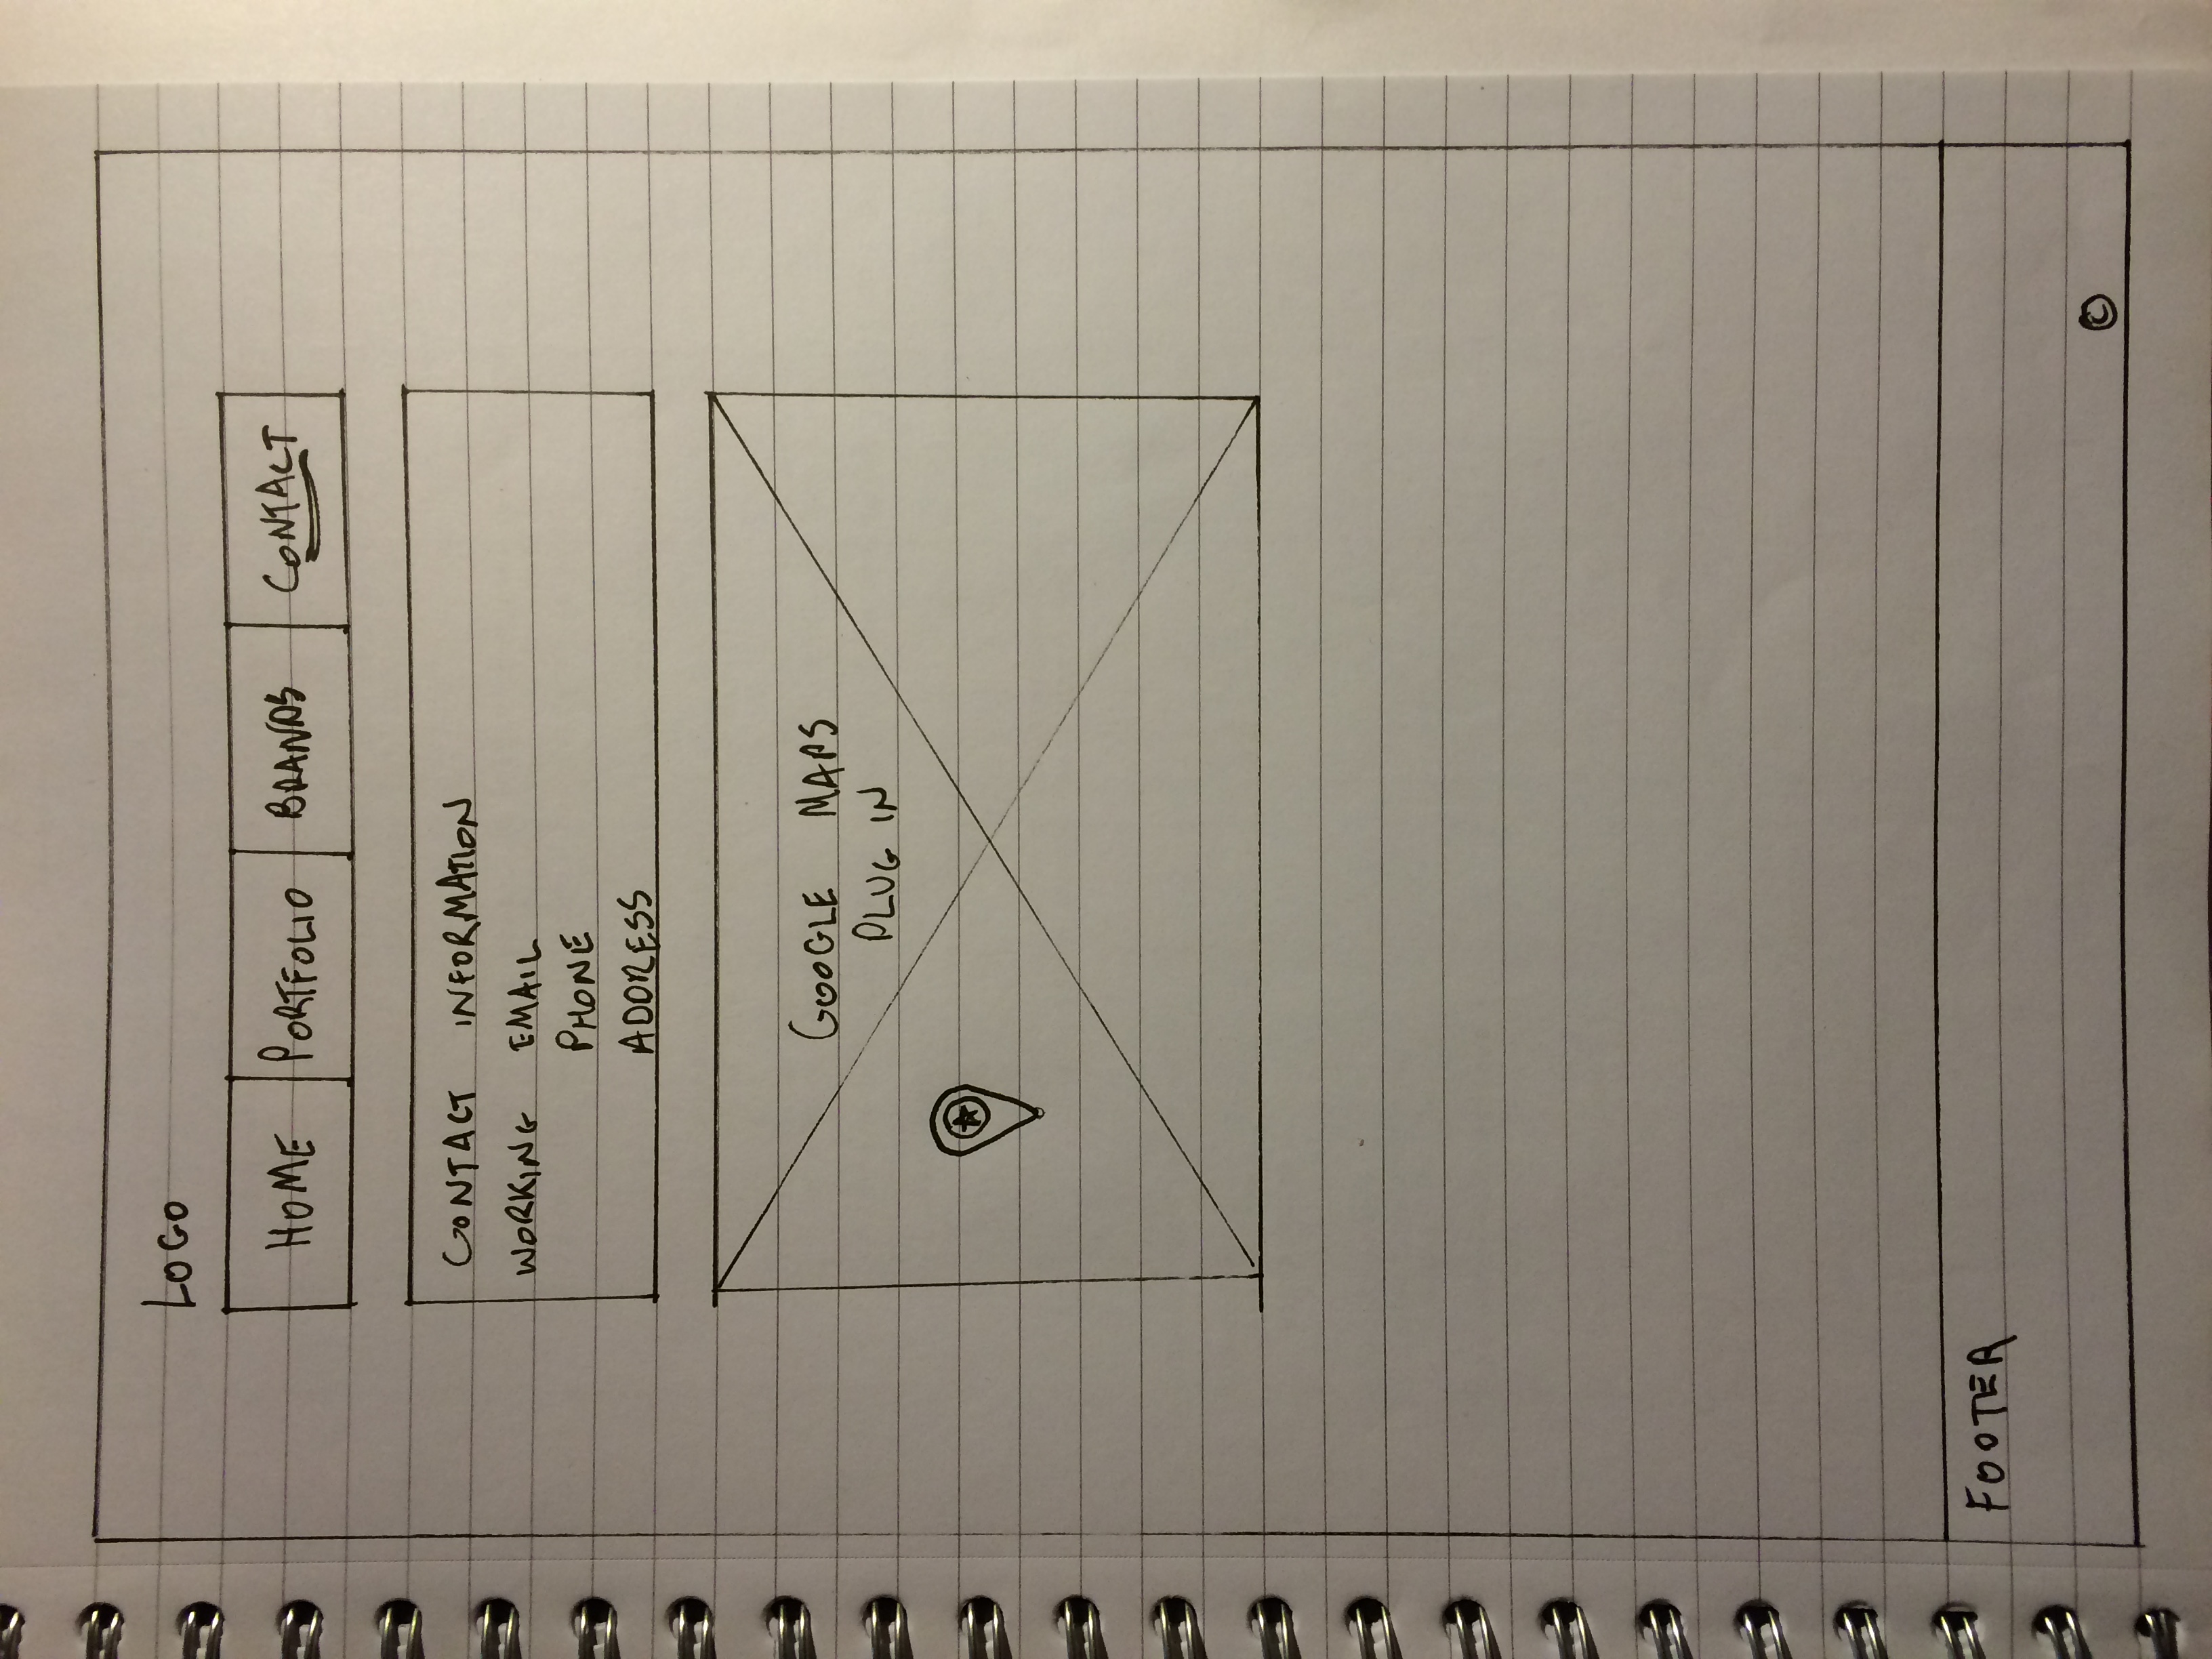 LOGO
HOME PORTFOLIO BRANDS CONTACT
CONTACT INFORMATION
WORKING EMAIL
PHONE
ADDRESS
GOOGLE MAPS
PLUG IN
FOOTER
©